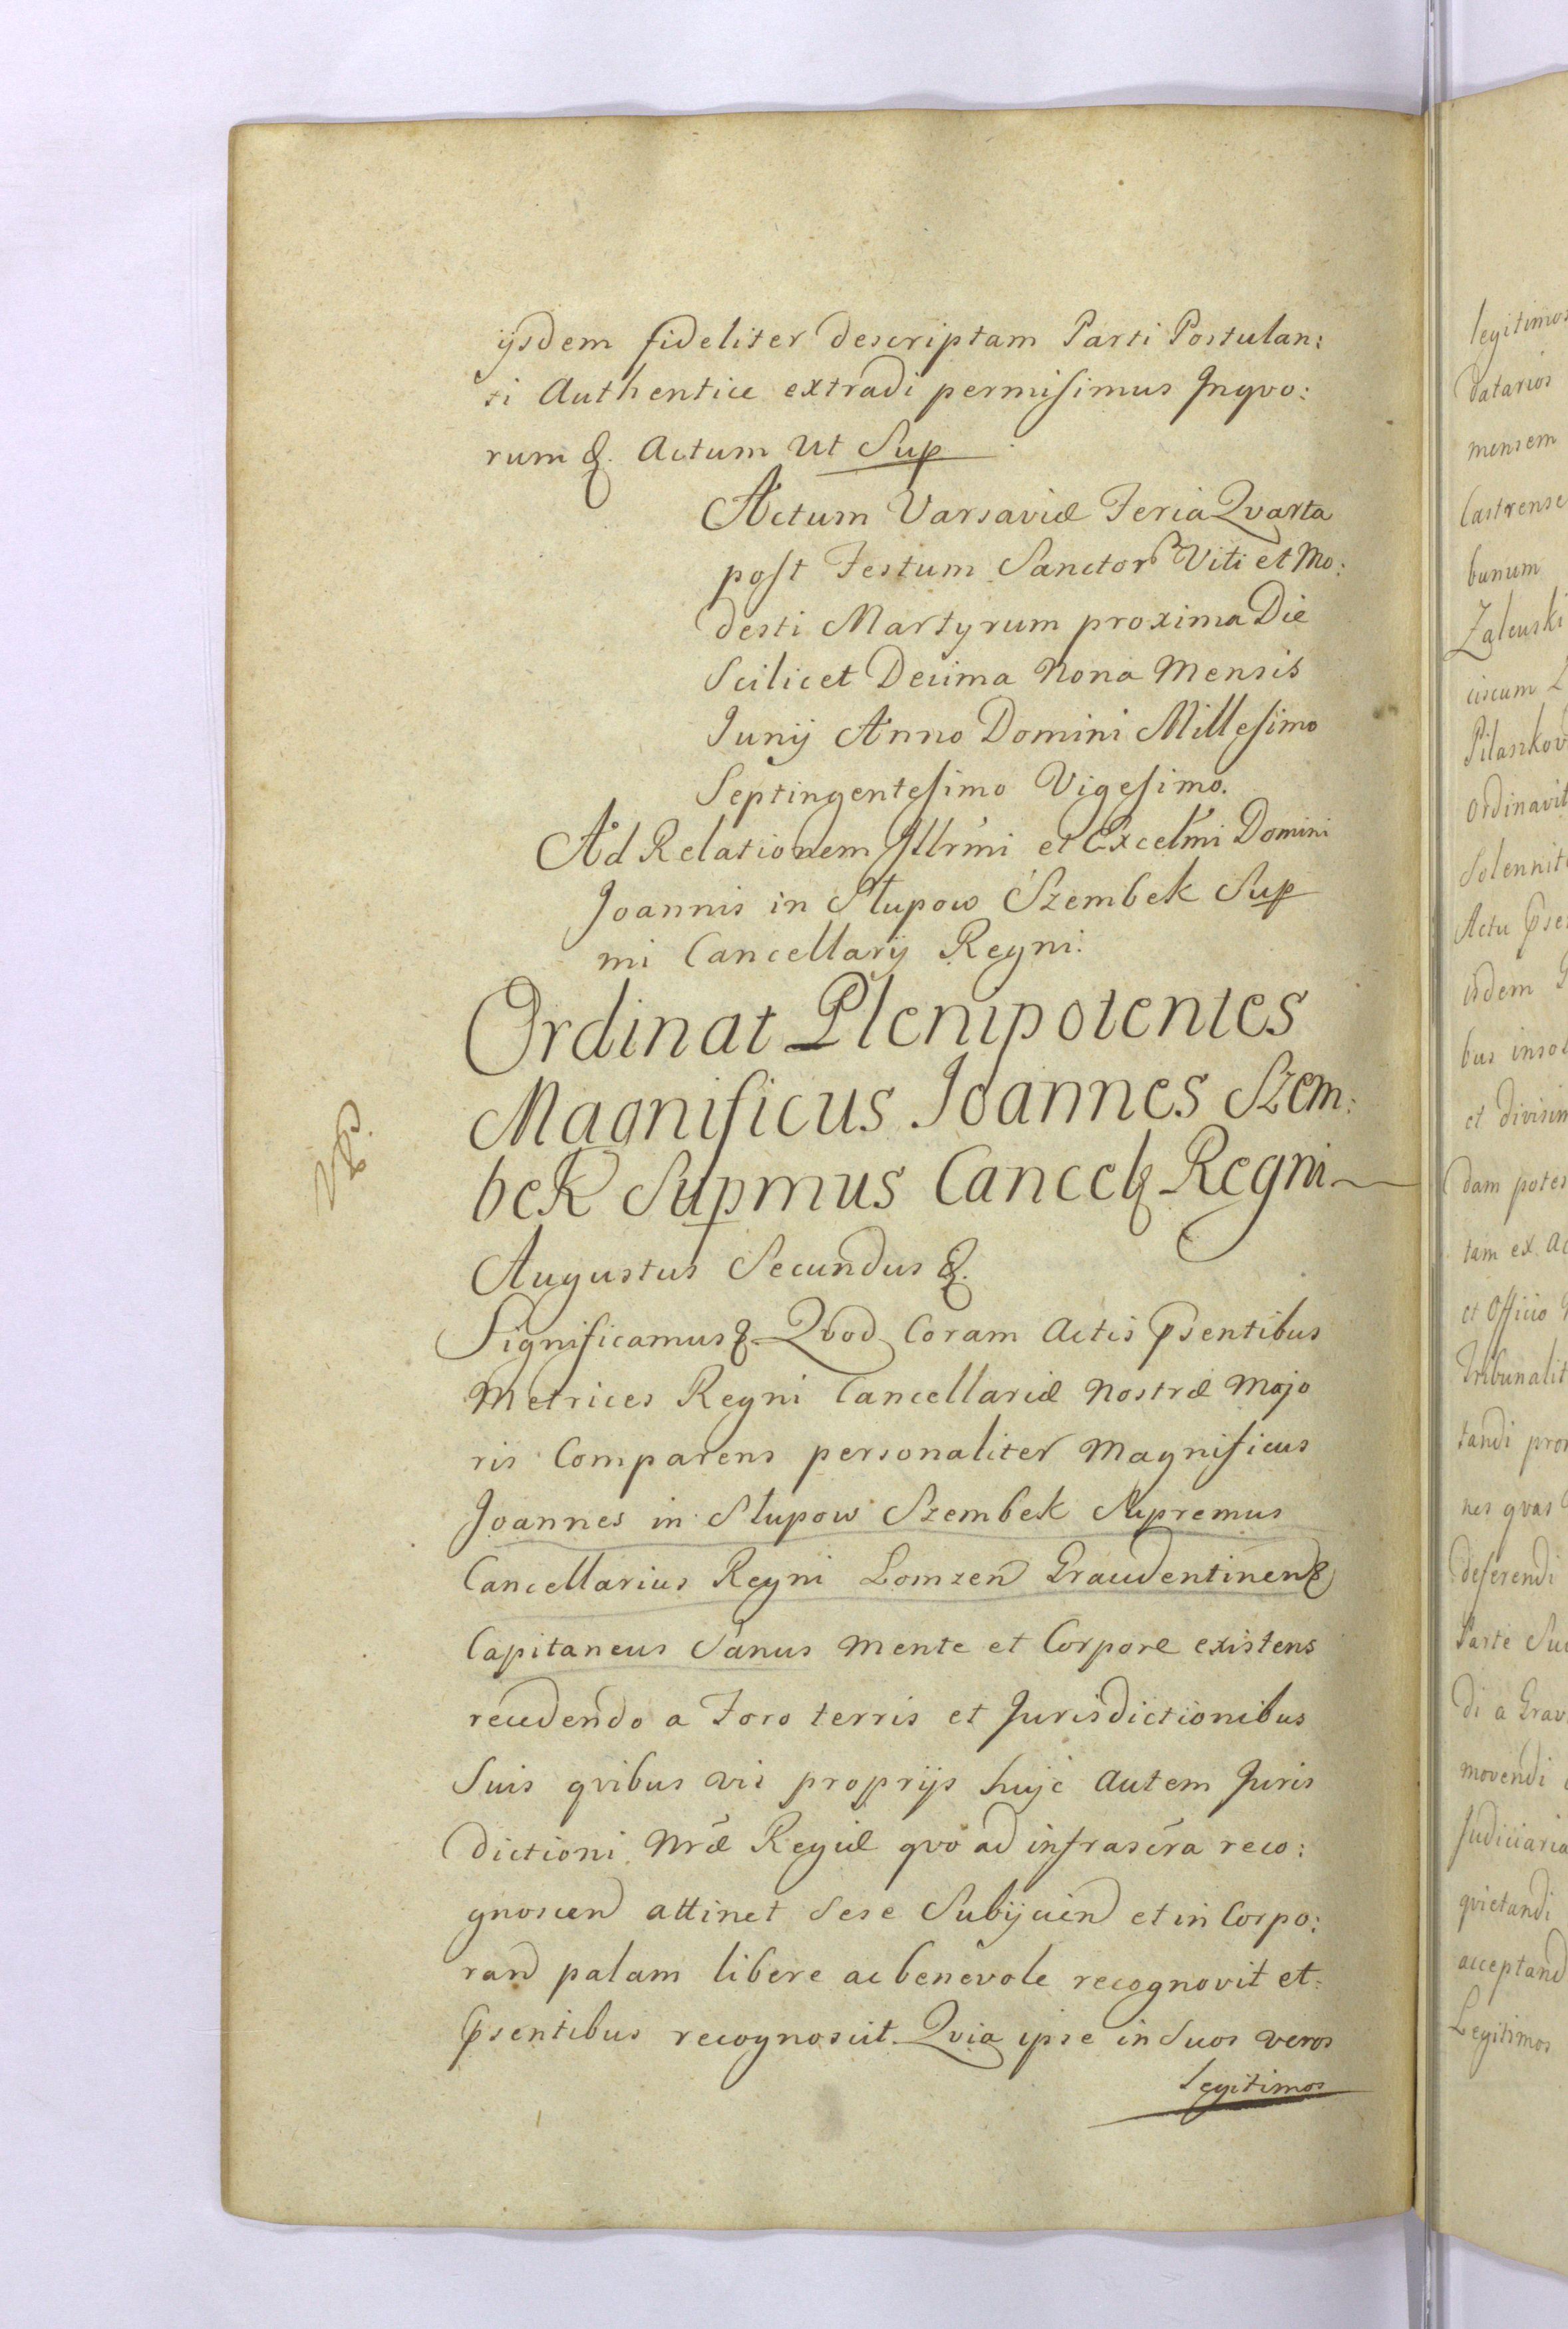 ijsdem fideliter descriptam Parti Postulan:
ti Authentice extradi permisimus Inqvo:
rum &. Actum Ut Sup
Actum Varsaviæ Feria Qvarta
post Festum Sanctor Viti et Mo:
desti Martyrum proxima Die
Scilicet Decima Nona Mensis
Junij Anno Domini Millesimo
Septingentesimo Vigesimo.
Ad Relationem Illrmi et Excelmi Domini
Joannis in Słupow Szembek Sup
mi Cancellarij Regni.
Ordinat Plenipotentes
Magnificus Joannes Szem:
bek Supmus Cancel Regni
Augustus Secundus &.
Significamus & Qvod Coram Actis Psentibus
Metrices Regni Cancellariæ Nostræ Majo
ris Comparens personaliter Magnificus
Joannes in Słupow Szembek Supremus
Cancellarius Regni Lomzen Graudentinen &
Capitaneus Sanus Mente et Corpore existens
recedendo a Foro terris et Jurisdictionibus
Suis qvibus vis proprijs hujc autem Juris
dictioni Nræ Regiæ qvo ad infrascra reco:
gnoscen attinet Sese Subijcien et in Corpo:
ran palam libere ac benevole recognovit et
Psentibus recognoscit. Qvia ipse in Suos veros
Legitimos
legitimos
datarios
mensem
Castrense
bunum
Zaleuski
ciscum
Ordinavit
Solennit
Actu Pse
idem
bus insol
et divisim
dam potes
tam ex Ac
et Officio
Tribunalit
tandi pro
nes qvas
deferendi
Parte Su
di a Grav
movendi
Judiciaria
qvietandi
acceptand
Legitimos